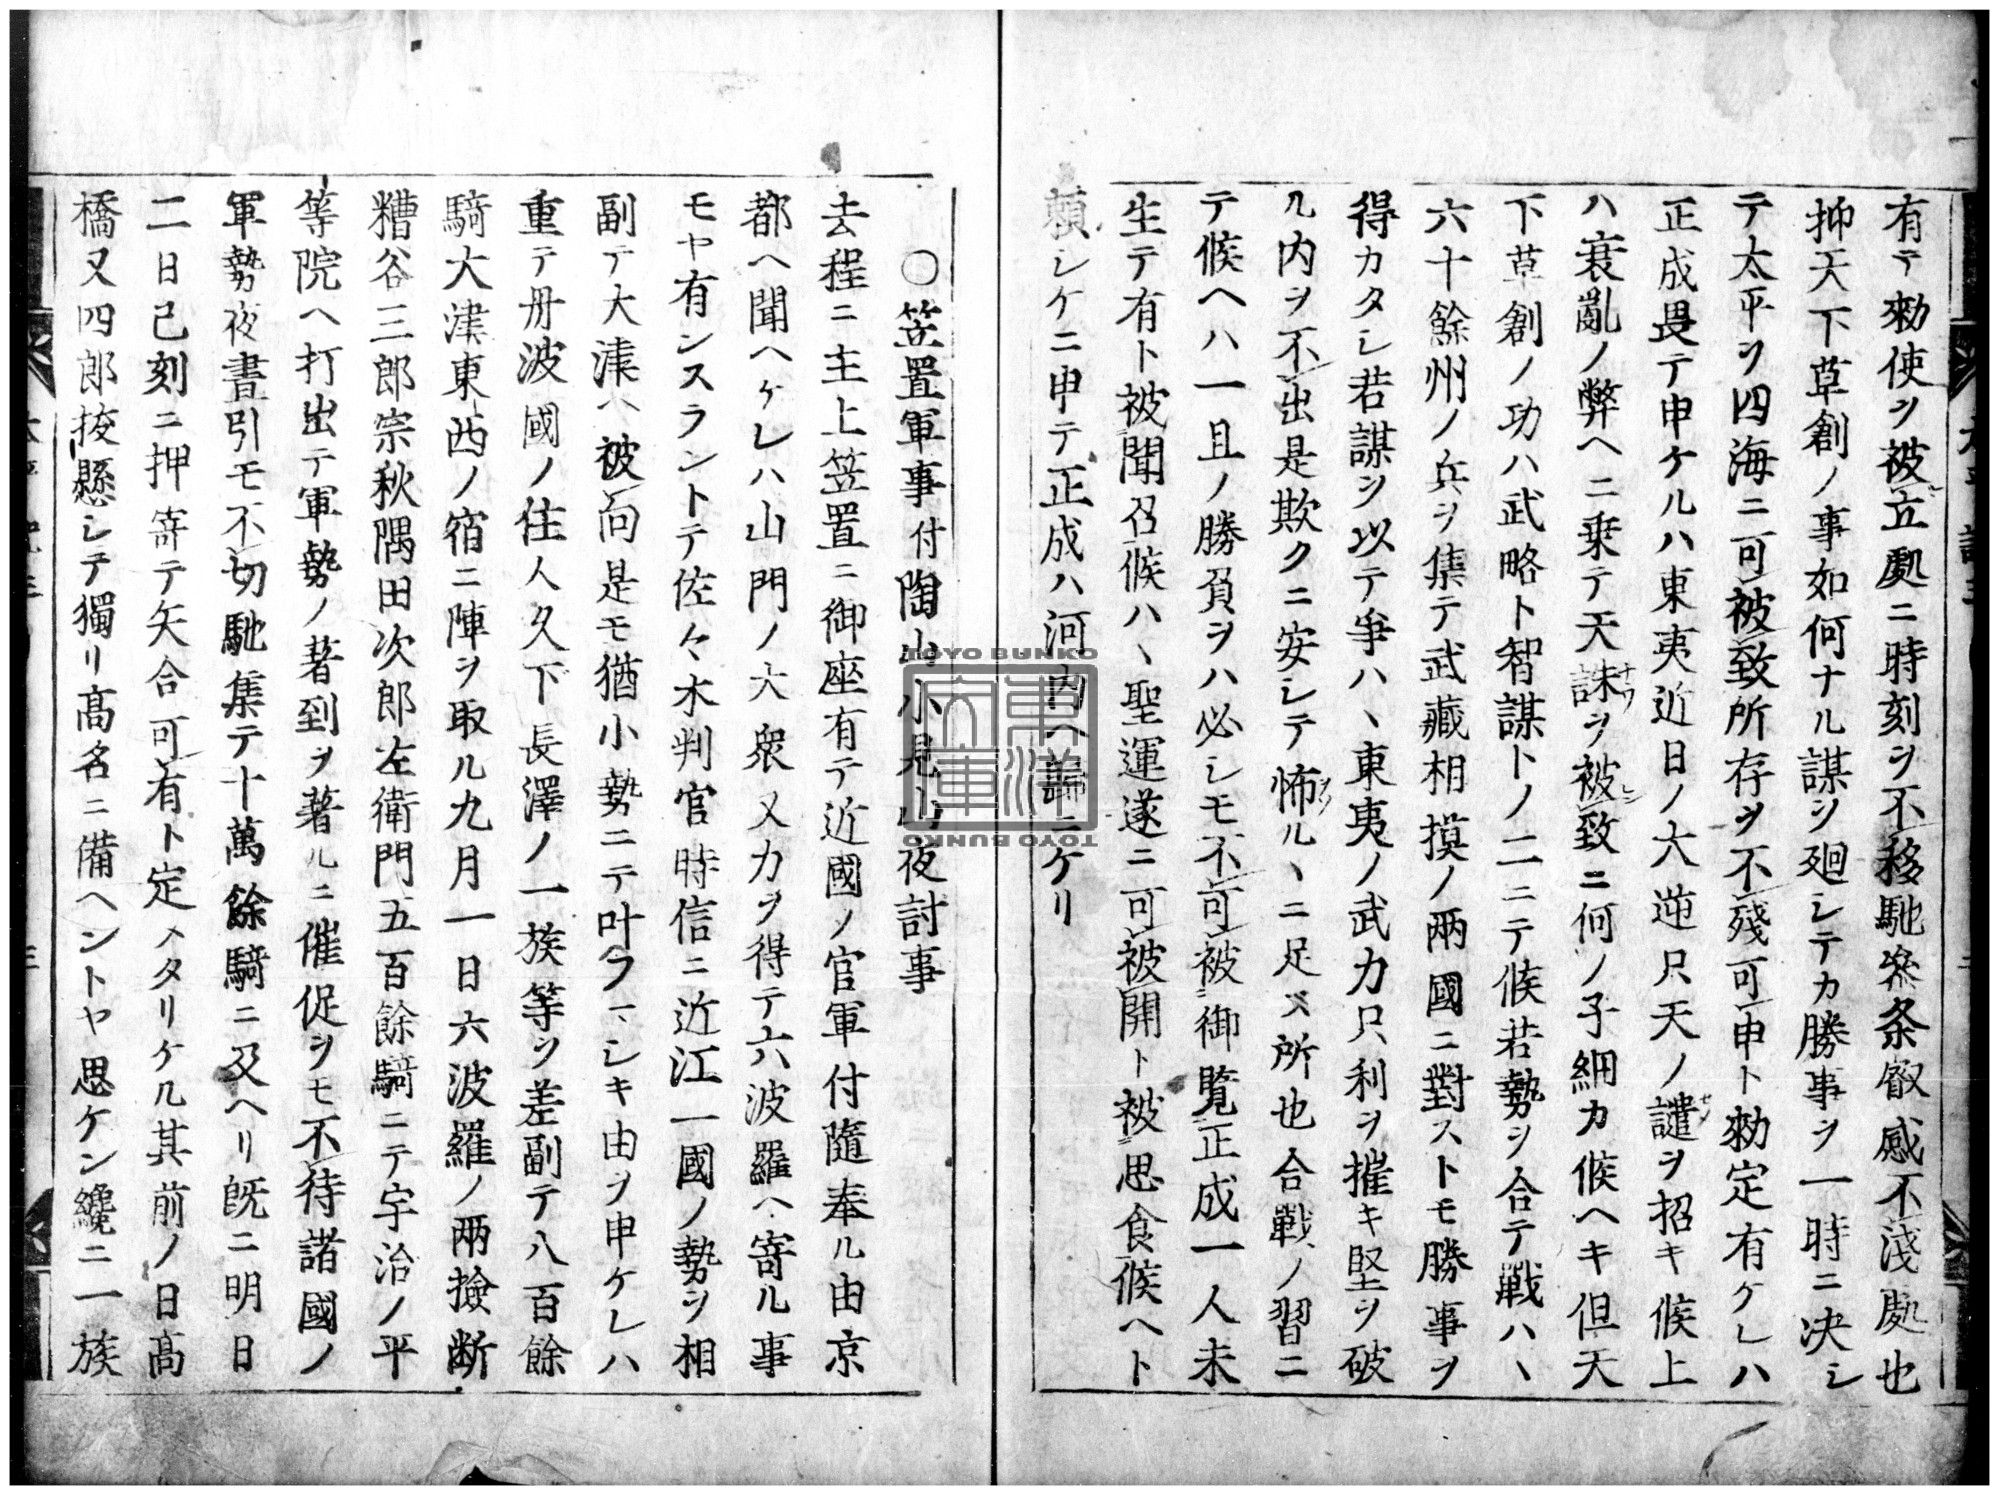 有テ勅使ヲ被立處ニ時刻ヲ不移馳參条叡感不淺處也
抑天下草創ノ事如何ナル謀ヲ廻シテカ勝事ヲ一時ニ决シ
テ太平ヲ四海ニ可被致所存ヲ不殘可申ト勅定有ケレハ
正成畏テ申ケルハ東夷近日ノ大逆只天ノ譴ヲ招キ候上
ハ衰亂ノ弊ヘニ乗テ天誅ヲ被致ニ何ノ子細カ候ヘキ但天
下草創ノ功ハ武略ト智謀トノ二ニテ候若勢ヲ合テ戰ハヽ
六十餘州ノ兵ヲ集テ武藏相摸ノ兩國ニ對ストモ勝事ヲ
得カタシ若謀ヲ以テ爭ハヽ東夷ノ武力只利ヲ摧キ堅ヲ破
ル内ヲ不出是欺クニ安シテ怖ルヽニ足ヌ所也合戰ノ習ニ
テ候ヘハ一旦ノ勝負ヲハ必シモ不可被御覽正成一人未
生テ有ト被聞召候ハヽ聖運遂ニ可被開ト被思食候ヘト
頼シケニ申テ正成ハ河内ヘ歸ニケリ
○笠置軍事付陶山小見山夜討事
去程ニ主上笠置ニ御座有テ近國ノ官軍付隨奉ル由京
都ヘ聞ヘケレハ山門ノ大衆又力ヲ得テ六波羅ヘ寄ル事
モヤ有ンスラントテ佐々木判官時信ニ近江一國ノ勢ヲ相
副テ大津ヘ被向是モ猶小勢ニテ叶フマシキ由ヲ申ケレハ
重テ丹波國ノ住人久下長澤ノ一族等ヲ差副テ八百餘
騎大津東西ノ宿ニ陣ヲ取ル九月一日六波羅ノ兩撿断
糟谷三郎宗秋隅田次郎左衛門五百餘騎ニテ宇治ノ平
等院ヘ打出テ軍勢ノ著到ヲ著ルニ催促ヲモ不待諸國ノ
軍勢夜晝引モ不切馳集テ十萬餘騎ニ及ヘリ既ニ明日
二日巳刻ニ押寄テ矢合可有ト定メタリケル其前ノ日高
橋又四郎拔懸シテ獨リ高名ニ備ヘントヤ思ケン纔ニ一族
TOYO BUNKO
東洋文庫
TOYO BUNKO